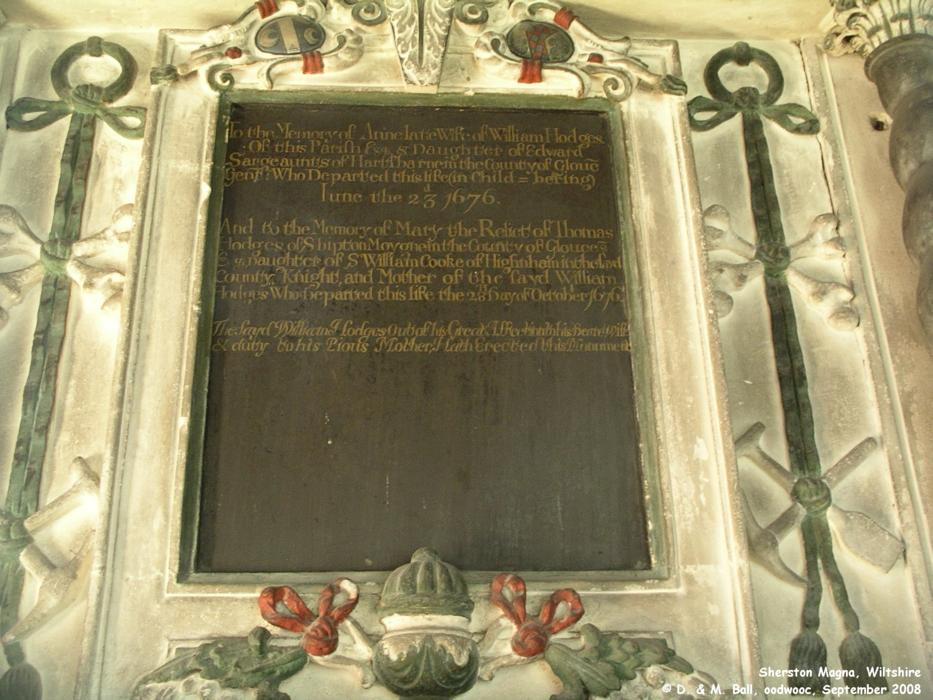 To the Memory of Anne late Wife of William Hodges
Of this Parish Esq & Daughter of Edward
Sargeaunts of Hart'sbarne in the County of Glouc
Gent: Who Departed this life (in Child = beering)
June the 23d 1676.
And to the Memory of Mary the Relict of Thomas
Hodges of Shipton Moyone in the County of Glouces
Esq Daughter of Sr William Cooke of Highnham in the sayd
County, Knight, and Mother of the sayd William
Hodges Who Departed this life the 28th Day of October 1676
The sayd William Hodges Out of his Great Affection to his Beare Wife
& duty to his Pious Mother, Hath Erected this Monument
Sherston Magna, Wiltshire
© D. & M. Ball, oodwooc, September 2008